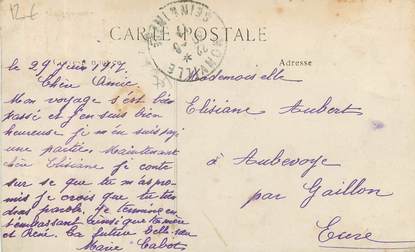 12€
CARTE POSTALE
Adresse
le 29 Juin 191
Chère Amie
Mon voyage s'est bien
passé et j'en suis bien
heureuse je
une partie Maintenant
chère Elisiane je conte
sur se que tu m'as pro-
mis je crois que tu tien
dras parole, je termine en
t'embrassant ainsi que ta mère
et René. Ta future Belle sœur
Marie Cabot
Mademoiselle
Elisiane Aubert
à Aubevoye
par Gaillon
Eure